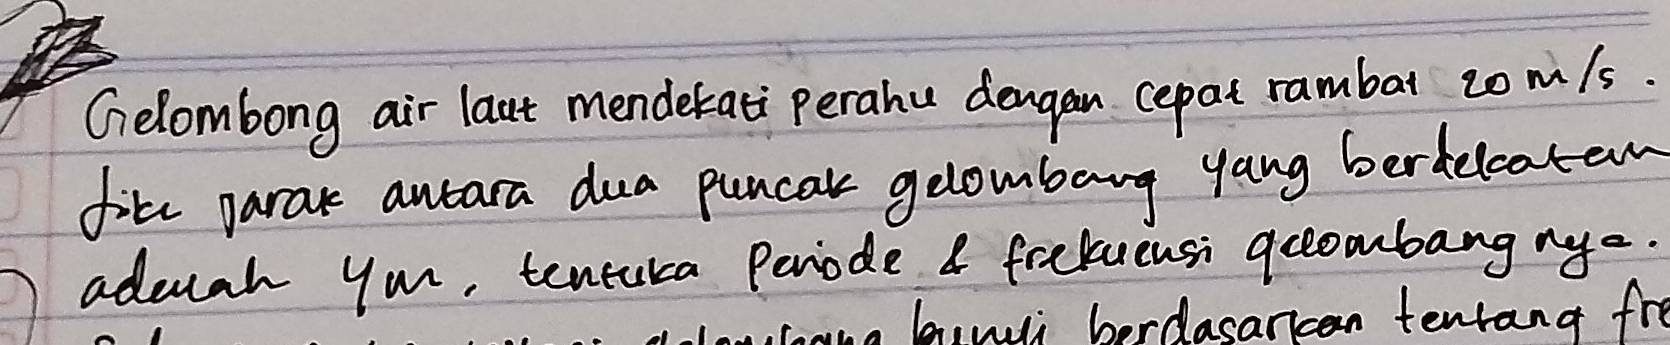 Gelombong air laut mendekati perahu dengan cepat rambat 20 m/s.
Jika jarak antara dua puncak gelombang yang berdekatan
adalah 4m, tentuka Periode & frekuensi gelombang nya.
bunyi berdasarkan tentang fre